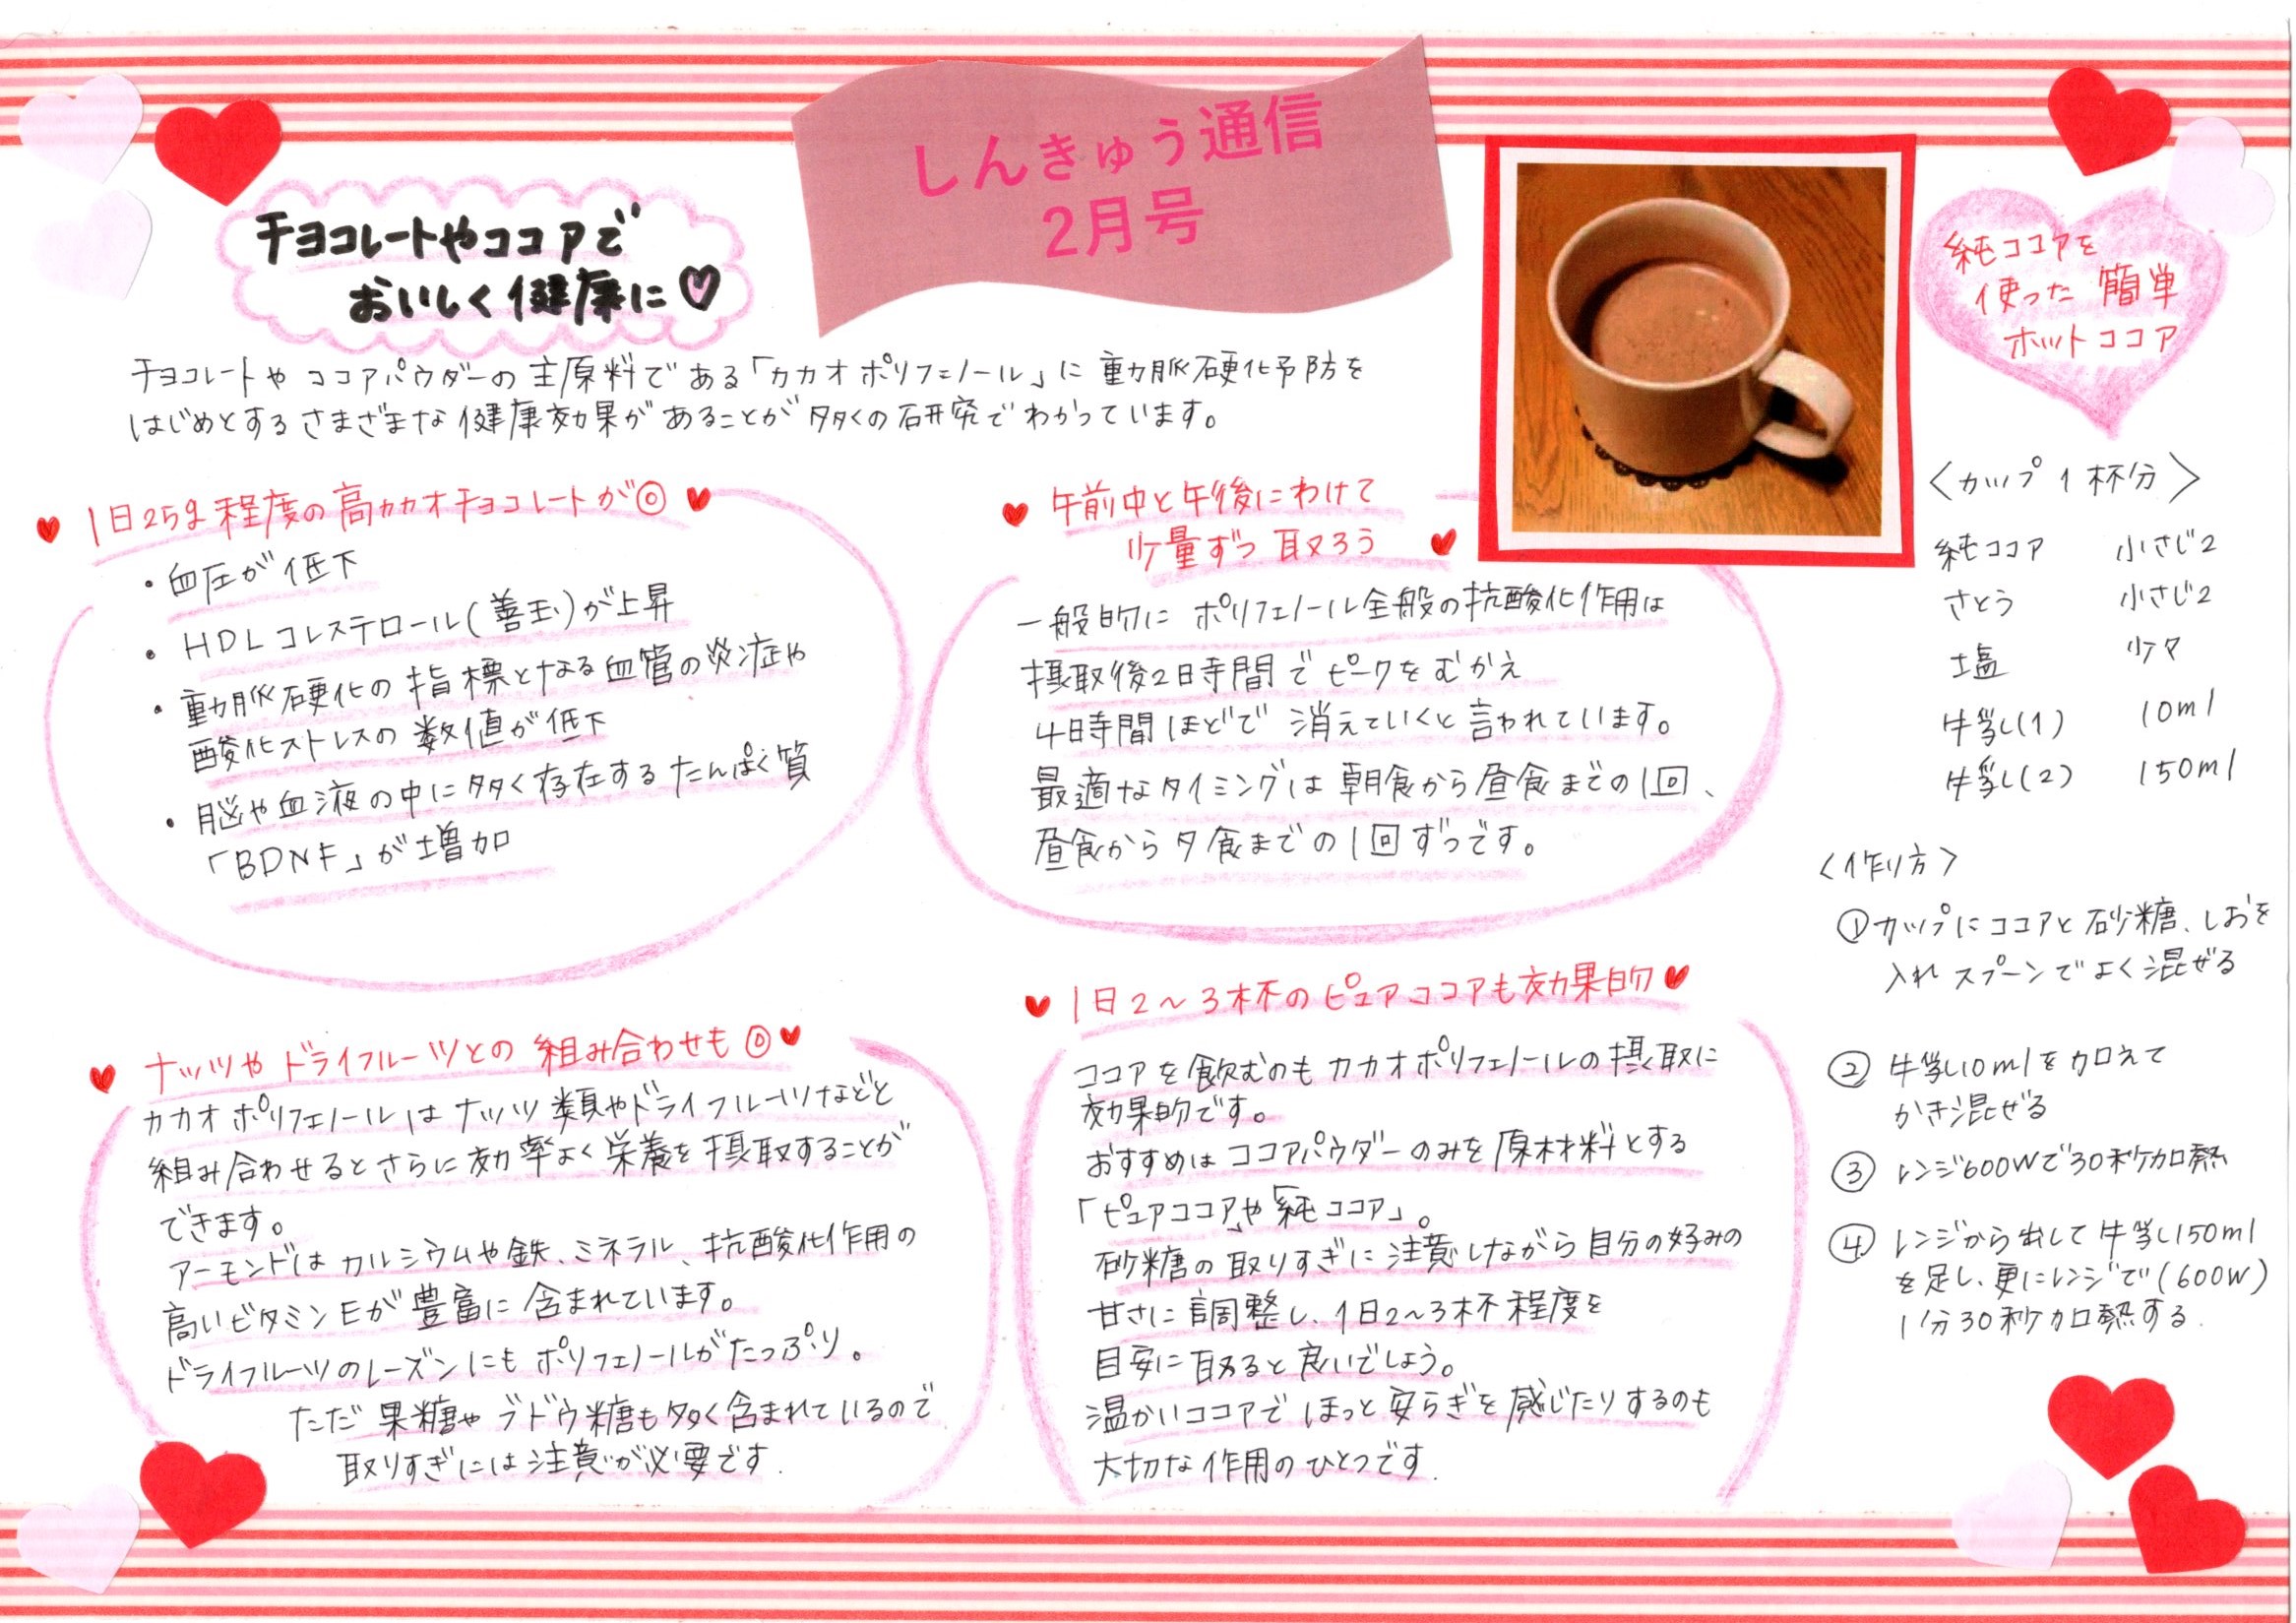 しんきゅう通信
2月号
チョコレートやココアで
おいしく健康に♡
チョコレートや ココアパウダーの 主原料である「カカオポリフェノール」に 動脈硬化予防を
はじめとする さまざまな 健康効果が あることが 多くの 研究で わかっています。
1日25g程度の高カカオチョコレートが◎
・血圧が低下
・HDLコレステロール(善玉)が上昇
・動脈硬化の指標となる血管の炎症や
酸化ストレスの数値が低下
・脳や血液の中に多く存在するたんぱく質
「BDNF」が増加
午前中と午後にわけて
少量ずつ取ろう
一般的に ポリフェノール全般の抗酸化作用は
摂取後2時間で ピークを むかえ
4時間ほどで 消えていくと言われています。
最適なタイミングは 朝食から昼食までの1回、
昼食から夕食までの1回ずつです。
ナッツや ドライフルーツとの 組み合わせも◎
カカオポリフェノールは ナッツ類やドライフルーツなどと
組み合わせると さらに効率よく栄養を摂取することが
できます。
アーモンドは カルシウムや鉄、ミネラル、抗酸化作用の
高いビタミンEが豊富に含まれています。
ドライフルーツのレーズンにも ポリフェノールがたっぷり。
ただ 果糖や ブドウ糖も多く含まれているので
取りすぎには 注意が必要です.
1日2～3杯の ピュアココアも効果的
ココアを飲むのも カカオポリフェノールの摂取に
効果的です。
おすすめは ココアパウダーのみを原材料とする
「ピュアココア」や「純ココア」。
砂糖の 取りすぎに 注意しながら 自分の好みの
甘さに 調整し、1日2～3杯程度を
目安に取ると良いでしょう。
温かいココアで ほっと安らぎを 感じたりするのも
大切な作用の ひとつです.
純ココアを
使った 簡単
ホットココア
〈カップ 1 杯分〉
純ココア 小さじ2
さとう 小さじ2
塩 少々
牛乳(1) 10ml
牛乳(2) 150ml
〈作り方〉
①カップに ココアと 砂糖、しおを
入れ スプーンで よく混ぜる
② 牛乳10mlを加えて
かき混ぜる
③ レンジ600Wで30秒加熱
④ レンジから出して 牛乳150ml
を足し、更にレンジで(600W)
1分30秒加熱する.